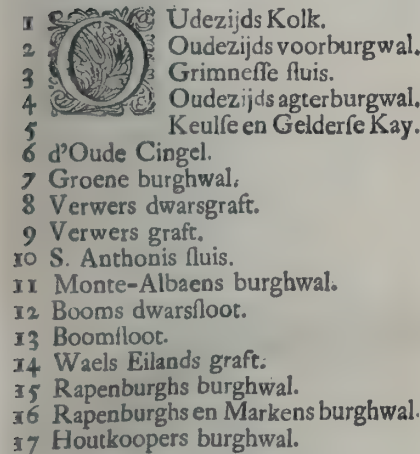 1 OUdezijds Kolk.
2 Oudezijds voorburgwal.
3 Grimnesſe ſluis.
4 Oudezijds agterburgwal.
5 Keulſe en Gelderſe Kay.
6 d'Oude Cingel.
7 Groene burghwal.
8 Verwers dwarsgraft.
9 Verwers graft.
10 S. Anthonis ſluis.
11 Monte-Albaens burghwal.
12 Booms dwarsſloot.
13 Boomſloot.
14 Waels Eilands graft.
15 Rapenburghs burghwal.
16 Rapenburghs en Markens burghwal.
17 Houtkoopers burghwal.